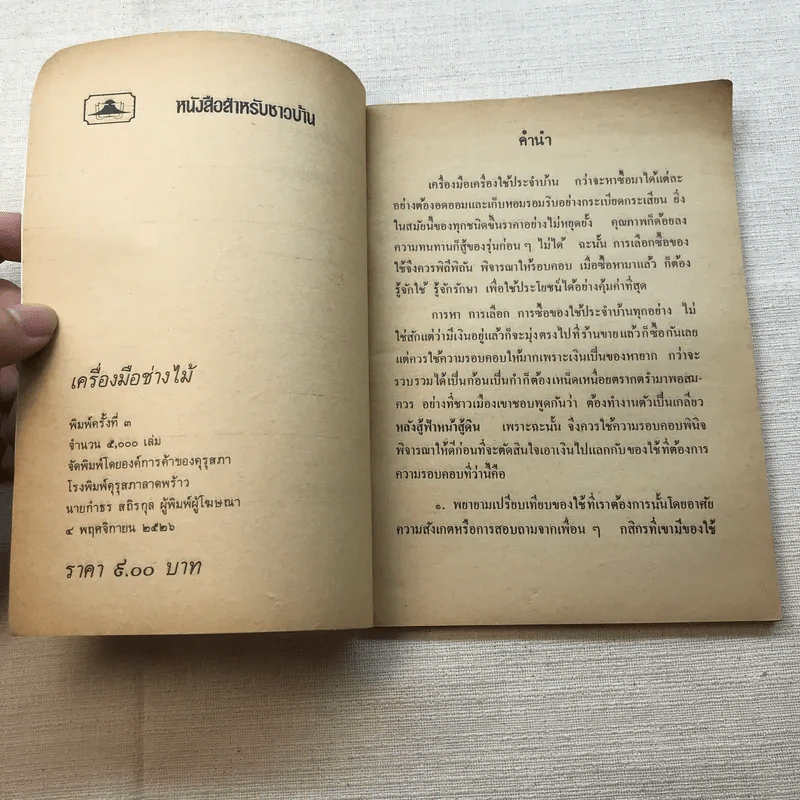 หนังสือสำหรับชาวบ้าน
เครื่องมือช่างไม้
พิมพ์ครั้งที่ ๓
จำนวน ๕,๐๐๐ เล่ม
จัดพิมพ์โดยองค์การค้าของคุรุสภา
โรงพิมพ์คุรุสภาลาดพร้าว
นายกำธร สถิรกุล ผู้พิมพ์ผู้โฆษณา
๔ พฤศจิกายน ๒๕๒๖
ราคา ๙.๐๐ บาท
คำนำ
เครื่องมือเครื่องใช้ประจำบ้าน กว่าจะหาซื้อมาได้แต่ละ
อย่างต้องอดออมและเก็บหอมรอมริบอย่างกระเบียดกระเสียน ยิ่ง
ในสมัยนี้ของทุกชนิดขึ้นราคาอย่างไม่หยุดยั้ง คุณภาพก็ด้อยลง
ความทนทานก็สู้ของรุ่นก่อน ๆ ไม่ได้ ฉะนั้น การเลือกซื้อของ
ใช้จึงควรพิถีพิถัน พิจารณาให้รอบคอบ เมื่อซื้อหามาแล้ว ก็ต้อง
รู้จักใช้ รู้จักรักษา เพื่อใช้ประโยชน์ได้อย่างคุ้มค่าที่สุด
การหา การเลือก การซื้อของใช้ประจำบ้านทุกอย่าง ไม่
ใช่สักแต่ว่ามีเงินอยู่แล้วก็จะมุ่งตรงไปที่ร้านขายแล้วก็ซื้อกันเลย
แต่ควรใช้ความรอบคอบให้มากเพราะเงินเป็นของหายาก กว่าจะ
รวบรวมได้เป็นก้อนเป็นกำก็ต้องเหน็ดเหนื่อยตรากตรำมาพอสม-
ควร อย่างที่ชาวเมืองเขาชอบพูดกันว่า ต้องทำงานตัวเป็นเกลียว
หลังสู้ฟ้าหน้าสู้ดิน เพราะฉะนั้น จึงควรใช้ความรอบคอบพินิจ
พิจารณาให้ดีก่อนที่จะตัดสินใจเอาเงินไปแลกกับของใช้ที่ต้องการ
ความรอบคอบที่ว่านี้คือ
๑. พยายามเปรียบเทียบของใช้ที่เราต้องการนั้นโดยอาศัย
ความสังเกตหรือการสอบถามจากเพื่อน ๆ กสิกรที่เขามีของใช้